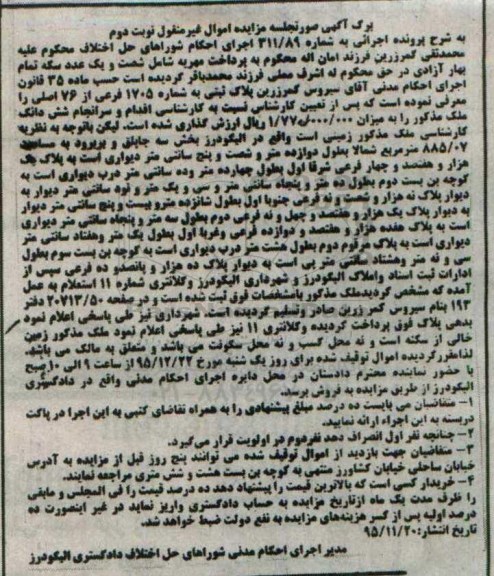 برگ آگهی صورتجلسه مزایده اموال غیرمنقول نوبت دوم
به شرح پرونده اجرائی به شماره ۳۱۱/۸۹ اجرای احکام شوراهای حل اختلاف محکوم علیه
محمدتقی گمرزرین فرزند امان اله محکوم به پرداخت مهریه شامل شصت و یک عدد سکه تمام
بهار آزادی در حق محکوم له اشرف معلی فرزند محمدباقر گردیده است حسب ماده ۳۵ قانون
اجرای احکام مدنی آقای سیروس گمرزرین پلاک ثبتی به شماره ۱۷۰۵ فرعی از ۷۶ اصلی را
معرفی نموده است که پس از تعیین کارشناس نسبت به کارشناسی اقدام و سرانجام شش دانگ
ملک مذکور را به میزان ۱/۷۷۰/۰۰۰/۰۰۰ ریال ارزش گذاری شده است. لیکن باتوجه به نظریه
کارشناسی ملک مذکور زمینی است واقع در الیگودرز بخش سه جاپلق و بربرود به مساحت
۸۸۵/۰۷ مترمربع شمالا بطول دوازده متر و شصت و پنج سانتی متر دیواری است به پلاک یک
هزار و هفتصد و چهار فرعی شرقا اول بطول چهارده متر وده سانتی متر درب دیواری است به
کوچه بن بست دوم بطول ده متر و پنجاه سانتی متر و سی و یک متر و نود سانتی متر دیوار به
دیوار پلاک نه هزار و شصت و نه فرعی جنوبا اول بطول شانزده مترو بیست و پنج سانتی متر دیوار
به دیوار پلاک یک هزار و هفتصد و چهل و نه فرعی دوم بطول سه متر و پنجاه سانتی متر دیواری
است به پلاک هفده هزار و هفتصد و دوازده فرعی وغربا اول بطول یک متر وهفتاد سانتی متر
دیواری است به پلاک مرقوم دوم بطول هشت متر درب دیواری است به کوچه بن بست سوم بطول
سی و نه متر وهشتاد سانتی متر پی است به دیوار پلاک ده هزار و پانصدو ده فرعی سپس از
ادارات ثبت اسناد واملاک الیگودرز و شهرداری الیگودرز وکلانتری شماره ۱۱ استعلام به عمل
آمده که مشخص گردیدملک مذکور بامشخصات فوق ثبت شده است و در صفحه ۲۰۷۱۳/۵۰ دفتر
۱۹۳ بنام سیروس کمر زرین صادر وتسلیم گردیده است. شهرداری نیز طی پاسخی اعلام نمود
بدهی پلاک فوق پرداخت گردیده وکلانتری ۱۱ نیز طی پاسخی اعلام نمود ملک مذکور زمین
خالی از سکنه است و نه محل کسب و نه محل سکونت می باشد و متعلق به مالک می باشد.
لذامقررگردیده اموال توقیف شده برای روز یک شنبه مورخ ۹۵/۱۲/۲۲ از ساعت ۹ الی ۱۰ صبح
با حضور نماینده محترم دادستان در محل دایره اجرای احکام مدنی واقع در دادگستری
الیگودرز از طریق مزایده به فروش برسد.
۱- متقاضیان می بایست ده درصد مبلغ پیشنهادی را به همراه تقاضای کتبی به این اجرا در پاکت
دربسته به این اجراء ارائه نمایند.
۲- چنانچه نفر اول انصراف دهد نفرهوم در اولویت قرار می‌گیرد.
۳- متقاضیان جهت بازدید از اموال توقیف شده می توانند پنج روز قبل از مزایده به آدرس
خیابان ساحلی خیابان کشاورز منتهی به کوچه بن بست هشت و شش متری مراجعه نمایند.
۴- خریدار کسی است که بالاترین قیمت را پیشنهاد دهد ده درصد قیمت را فی المجلس و مابقی
را ظرف مدت یک ماه ازتاریخ مزایده به حساب دادگستری واریز نماید در غیر اینصورت ده
درصد اولیه پس از کسر هزینه‌های مزایده به نفع دولت ضبط خواهد شد.
تاریخ انتشار: ۹۵/۱۱/۲۰
مدیر اجرای احکام مدنی شوراهای حل اختلاف دادگستری الیگودرز